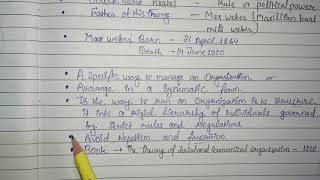 Kratos - Rule or political power
Father of this theory - Max weber (Maxillian karl
mile weber)
Max Weber Born - 21 April 1864
Death - 14 June 1920
A specific way to manage an Organisation. or
Arrange in a Systematic form.
Is the way to run an Organization is to structure
it into a rigid hierarchy of individuals governed
by strict rules and regulations
Avoid Nepotism and favoritism.
Book → The Theory of Social and Economical organization - 1920